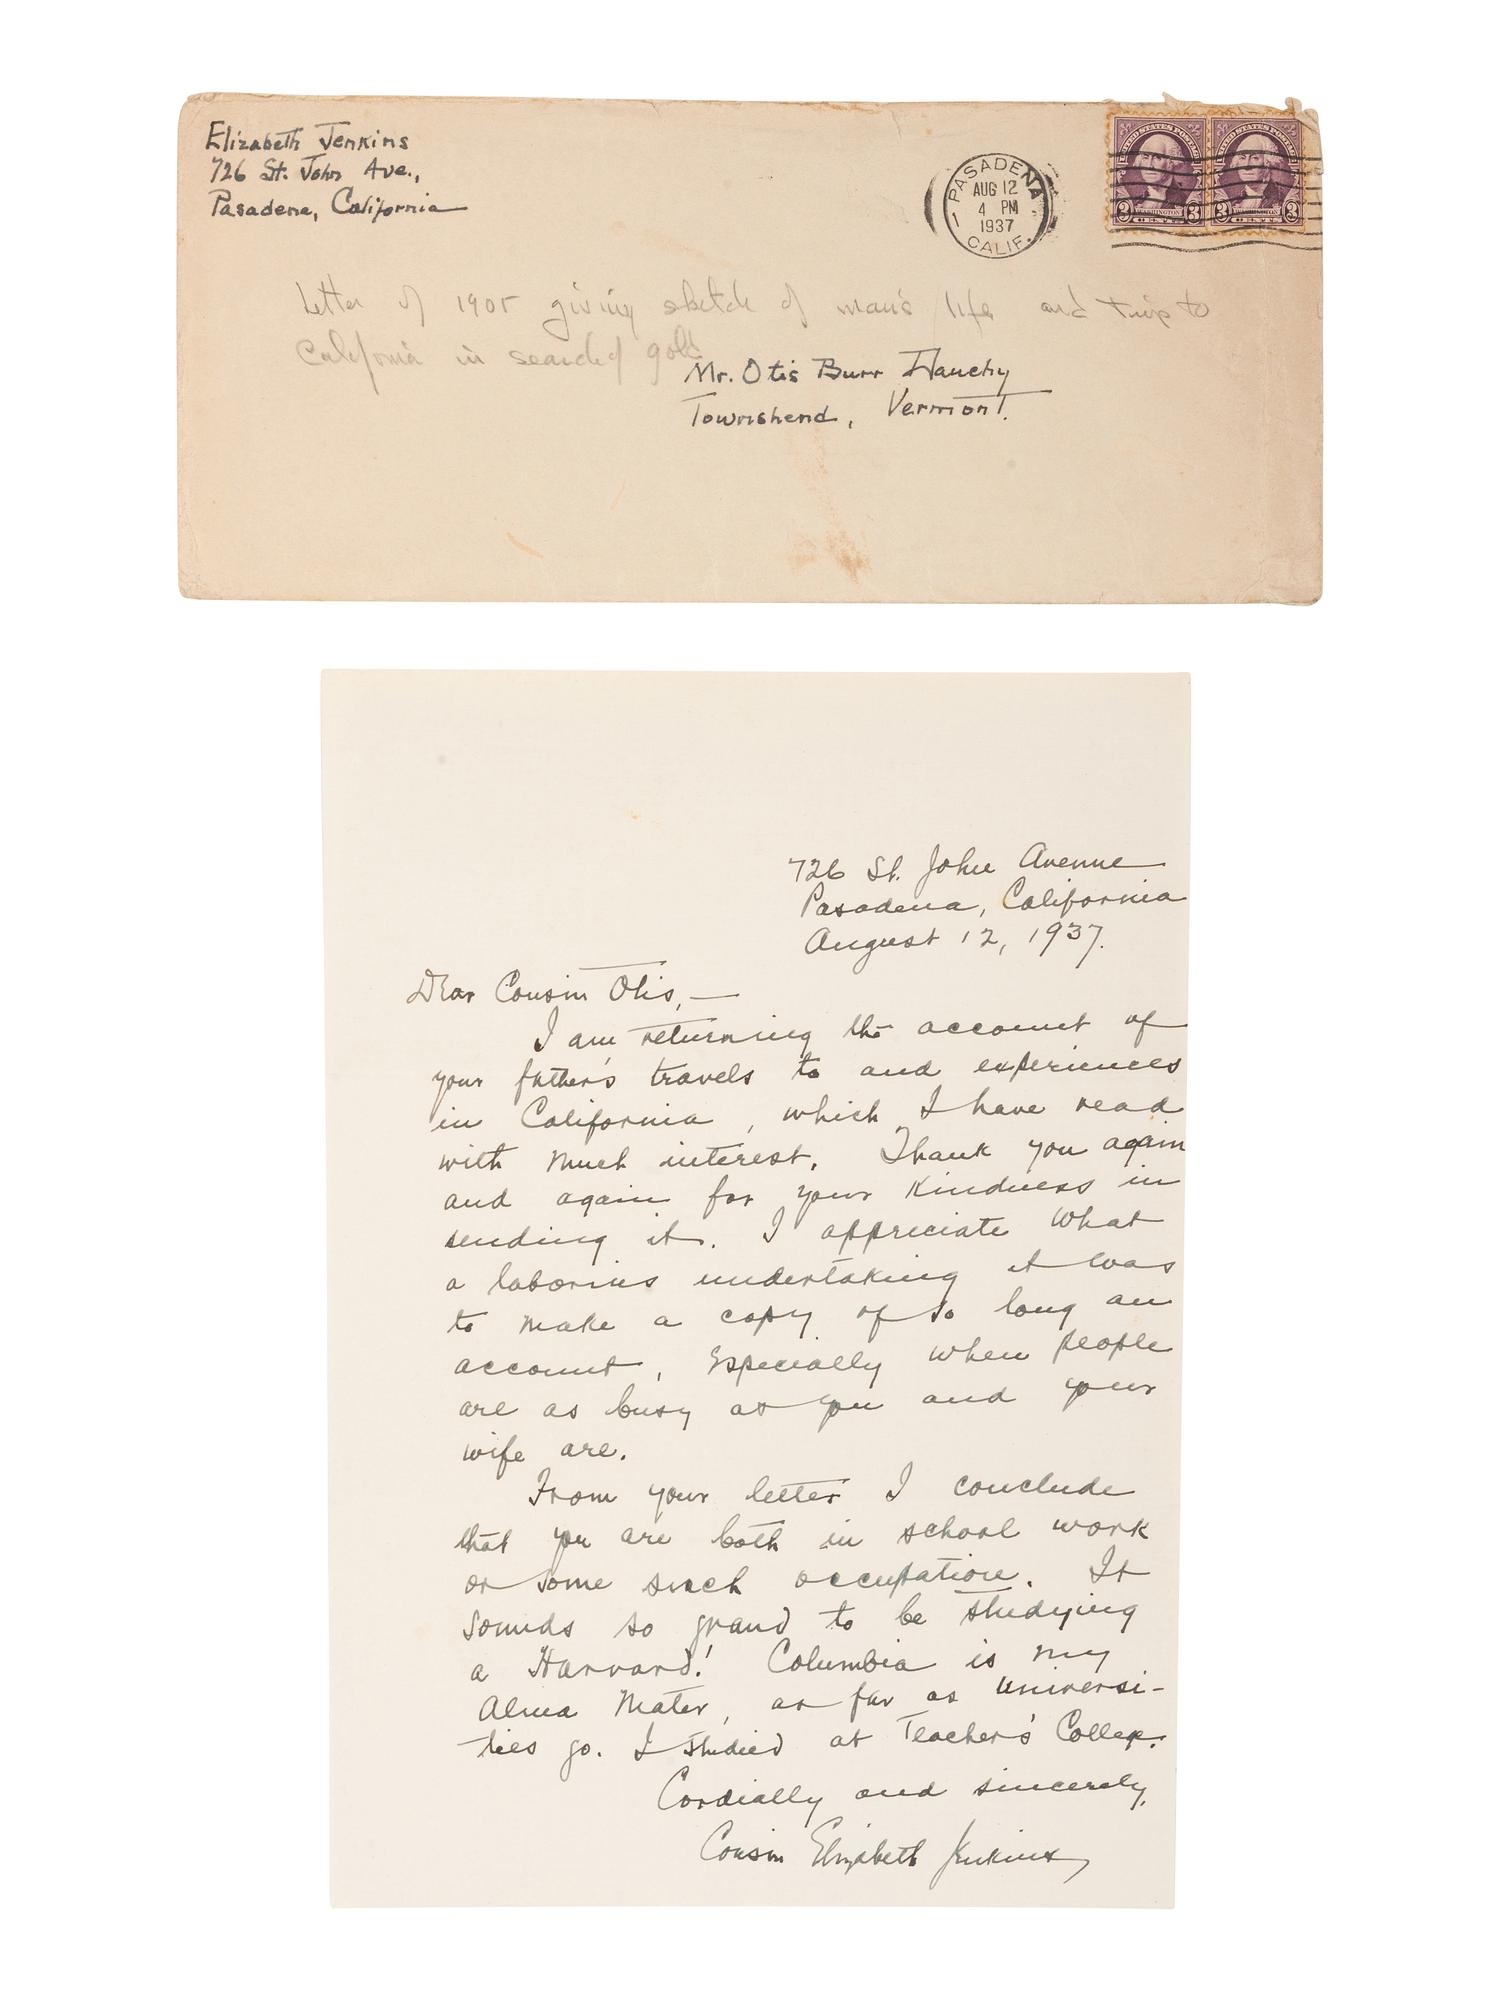 Elizabeth Jenkins
726 St. John Ave.,
Pasadena, California
PASADENA
AUG 12
4 PM
1937
CALIF.
UNITED STATES POSTAGE
UNITED STATES POSTAGE
3 WASHINGTON 3
CENTS
3 WASHINGTON 3
CENTS
Letter of 1905 giving sketch of man's life and trip to
California in search of gold
Mr. Otis Burr
Townshend, Vermont.
726 St. John Avenue
Pasadena, California
August 12, 1937.
Dear Cousin Otis,—
I am returning the account of
your father's travels to and experiences
in California, which I have read
with much interest. Thank you again
and again for your kindness in
sending it. I appreciate what
a laborius undertaking it was
to make a copy of so long an
account, especially when people
are as busy as you and your
wife are.
From your letter I conclude
that you are both in school work
or some such occupation. It
sounds so grand to be studying
a Harvard! Columbia is my
Alma Mater, as far as universi-
ties go. I studied at Teacher's College.
Cordially and sincerely,
Cousin Elizabeth Jenkins